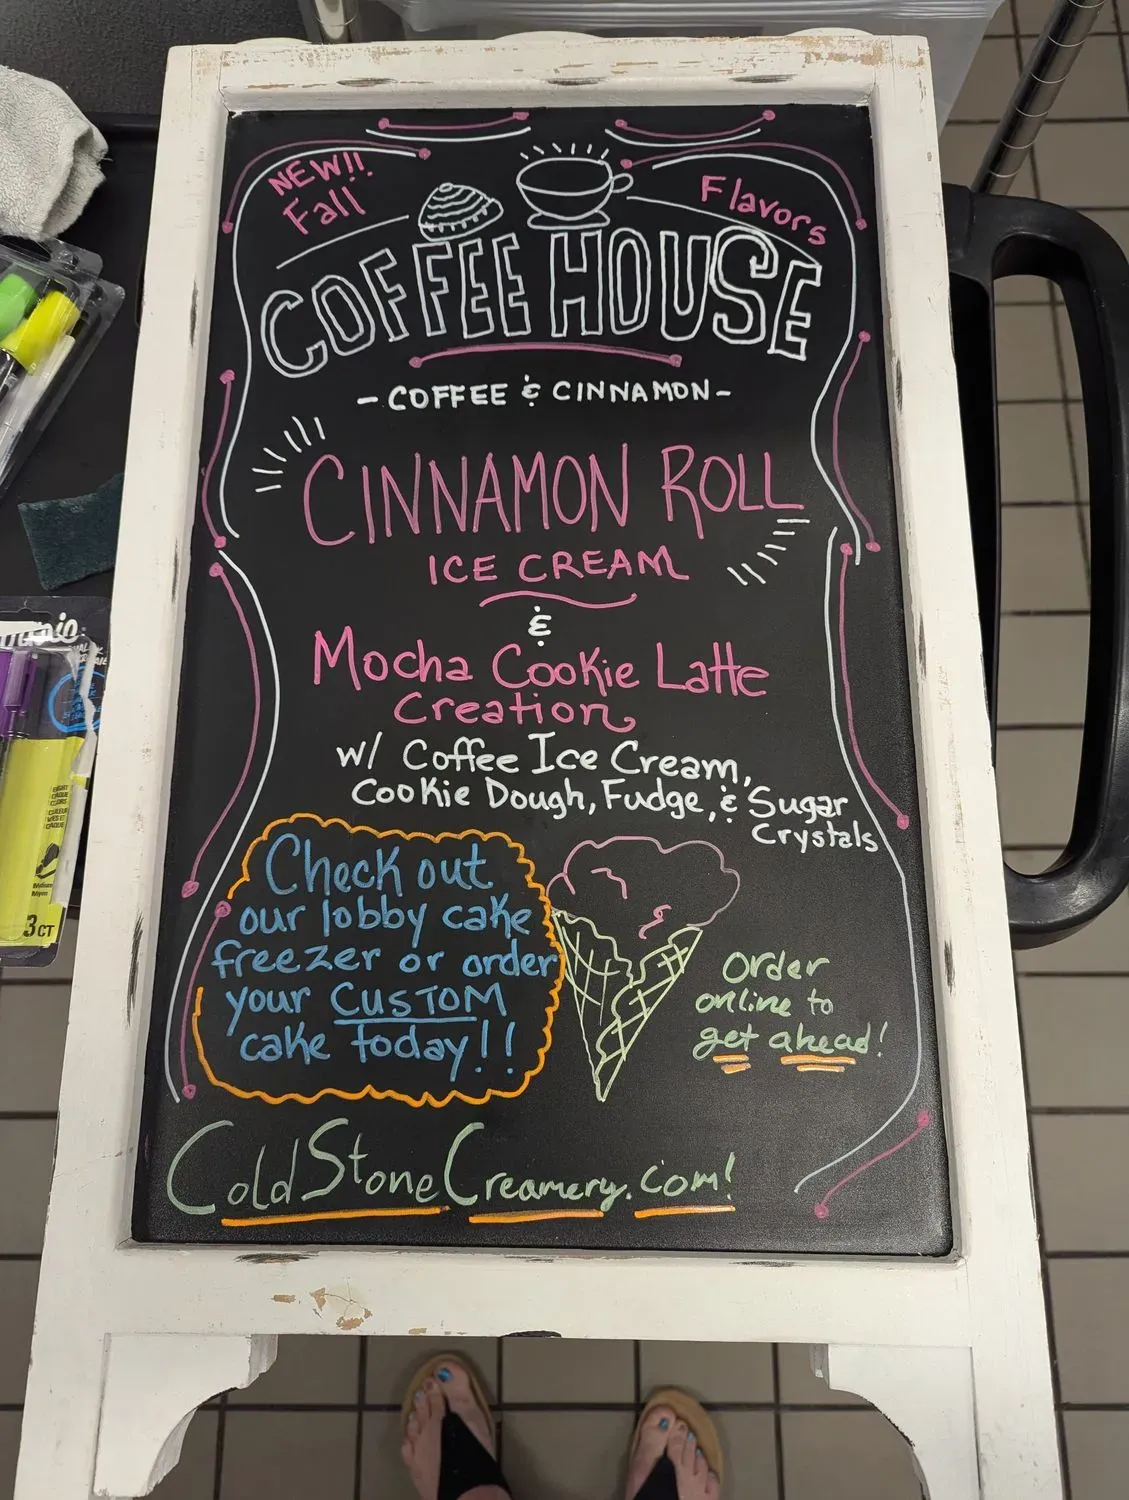 NEW!!
Fall
Flavors
COFFEE HOUSE
- COFFEE & CINNAMON -
CINNAMON ROLL
ICE CREAM
&
Mocha Cookie Latte
Creation
w/ Coffee Ice Cream,
Cookie Dough, Fudge, & Sugar
Crystals
Check out
our lobby cake
freezer or order
your CUSTOM
cake today!!
Order
online to
get ahead!
ColdStoneCreamery.com!
3 CT